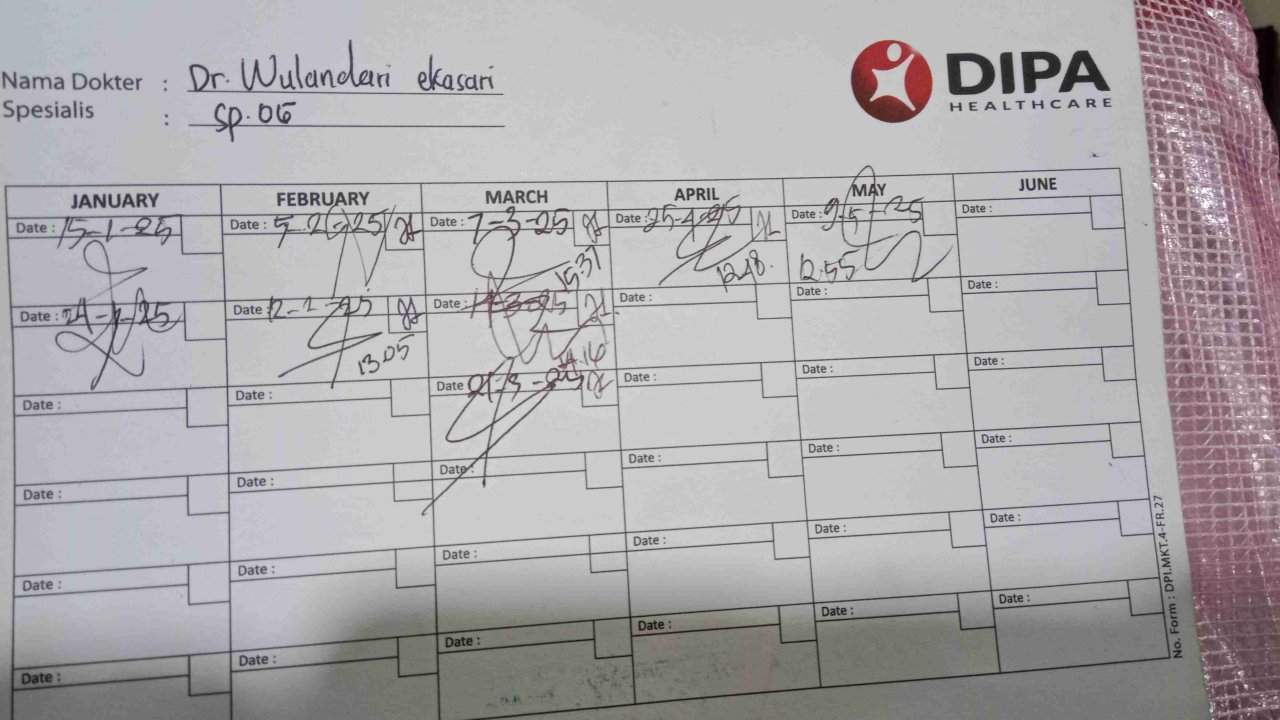 Nama Dokter : Dr. Wulandari ekasari
Spesialis : Sp.OG
DIPA
HEALTHCARE
JANUARY FEBRUARY MARCH APRIL MAY JUNE
Date : 15-1-25 Date : 5-2-25 Date : 7-3-25 Date : 25-4-25 Date : 9-5-25 Date :
15.37 12.48. 12.55
Date : 24-1-25 Date : 12-2-25 Date : 14-3-25 Date : Date : Date :
13.05 14.16
Date : Date : Date 21-3-25 Date : Date : Date :
Date : Date : Date : Date : Date : Date :
Date : Date : Date : Date : Date : Date :
Date : Date : Date : Date : Date : Date :
No. Form : DPI.MKT.4-FR.27